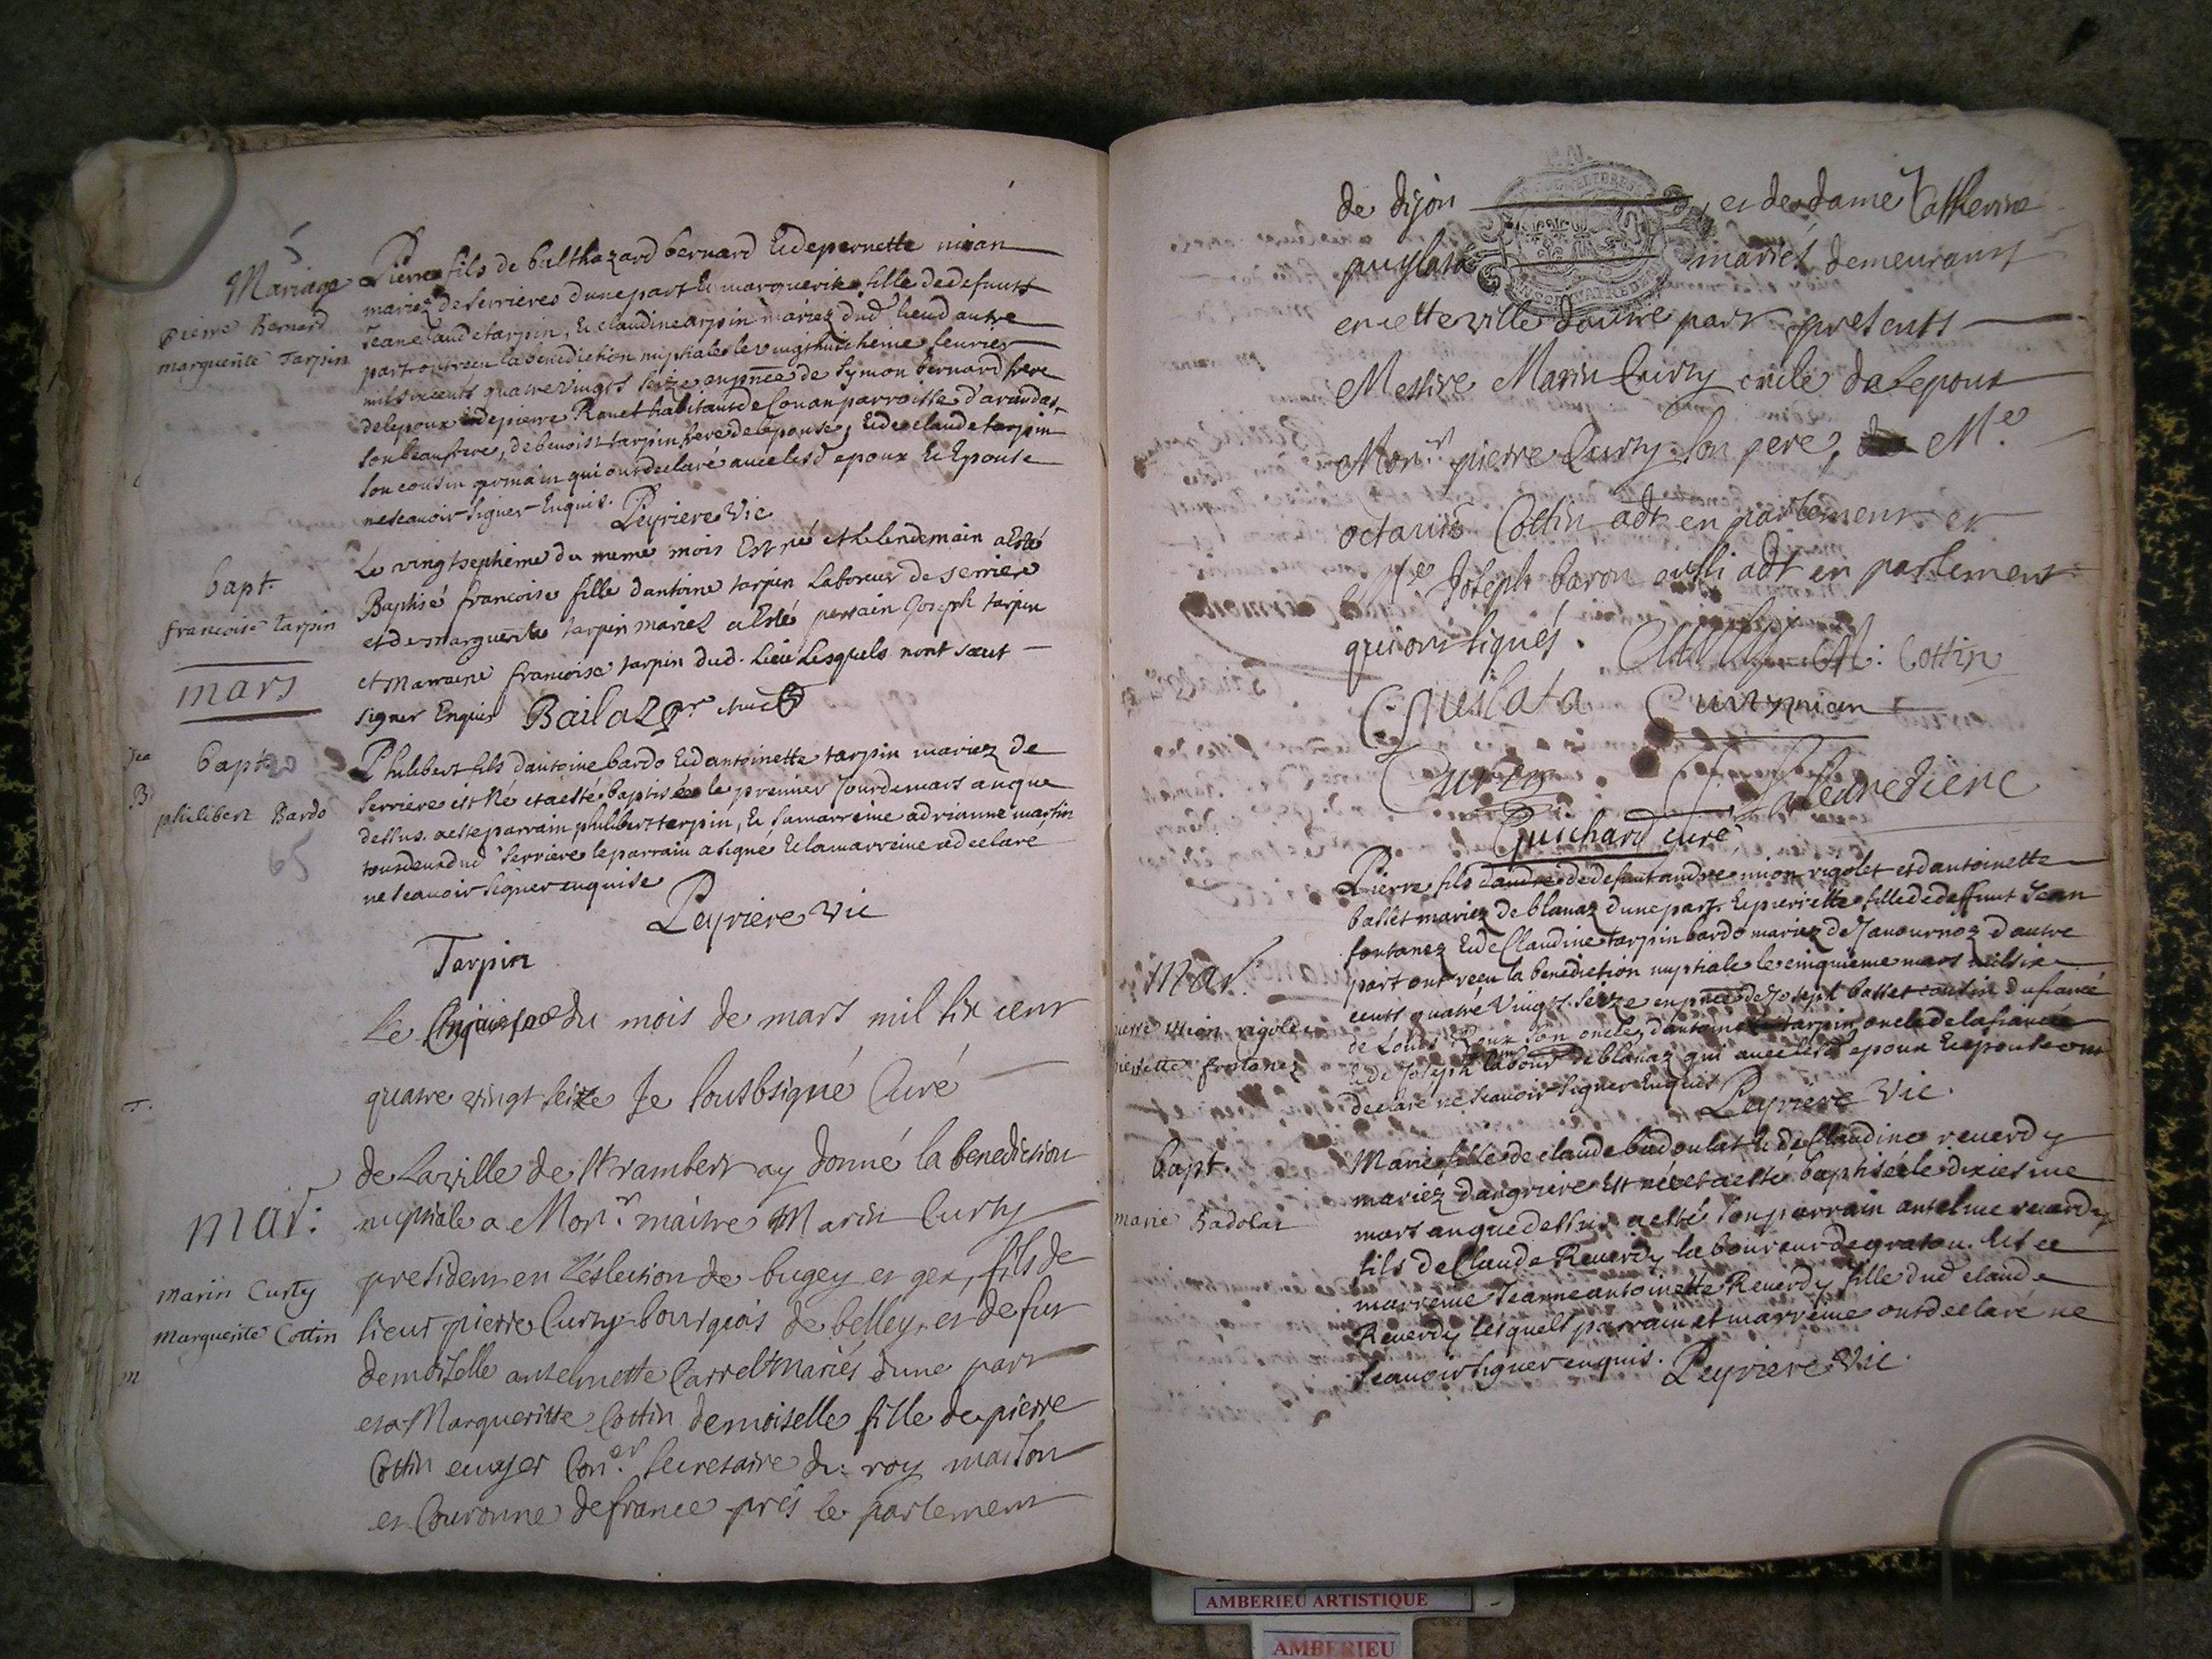 Mariage
pierre Bernard
marguerite Tarpin
Pierre fils de balthazard bernard & de pernette
mariez de serrieres dune part & marguerite fille de defunts
Jeanclaude tarpin, & claudine arpin mariez dud lieu d autre
part ont receu la benediction nuptiale le vingthuictieme feurier
mil sixcents quatre vingts seize en pñce de symon bernard frere
de lepoux & de pierre habitants de parroisse d'arandas,
son beaufrere, de benoist tarpin frere de lepouse, & de claude tarpin
son cousin germain qui ont declaré auec lesd epoux & Epouse
ne scauoir signer Enquis. Peyriere Vic
bapt.
francoise tarpin
Le vingtseptieme du meme mois Est né et le lendemain a Esté
Baptisé francoise fille dantoine tarpin Laboreur de serriere
et de marguerite tarpin mariez a Esté perrain Joseph tarpin
et Marraine francoise tarpin dud. Lieu Lesquels nont sceut
signer Enquis
mars
bapt 20
philibert Bardo
65
Philibert fils dantoine bardo & dantoinette tarpin mariez de
Serriere est Né et a esté baptisé le premier Jour de mars an que
dessus. a esté parrain philibert tarpin, & sa marreine adrianne martin
tous deux dud Serriere le parrain a signé & la marreine a declaré
ne scauoir signer enquise
Peyriere vic
Tarpin
mar:
marin Curty
marguerite Cottin
Le du mois de mars mil six cent
quatre vingt seize Je soubsigné Curé
de La ville de st rambert ay donné la benediction
nuptiale a Monr. maitre Marin Curty
president en L'eslection de bugey et gex, fils de
sieur pierre Curty bourgeois de belley, et de fut
demoiselle antelmette Carrel mariés d'une part
et a Margueritte Cottin demoiselle fille de pierre
Cottin ecuyer Coner. secretaire du roy maison
et Couronne de france prés le parlement
de dijon et de dame Catherine
mariés demeurant
en cette ville dautre part presents
Messire Marin Curty oncle de Lepoux
Monr. pierre Curty son pere, Me
octauié Cottin adt en parlement et
Me Joseph baron aussi adt en parlement
qui ont signés. Curty M: Cottin
Curty
Guichard curé
mar.
pierre rigolet
pierrette fontanez
Pierre fils de defunt andre mion rigolet et dantoinette
basset mariez de blanaz dune part, & pierrette fille de deffunt Jean
fontanez & de Claudine tarpin bardo mariez de Jauournoz d autre
part ont receu la benediction nuptiale le cinquieme mars mil six
cents quatre vingt seize en pñce de Joseph basset cousin du fiancé
de Louis Roux son oncle, dantoine tarpin oncle de la fiancée
& de Joseph de blanaz qui auec lesd epoux & epouse ont
declaré ne scauoir signer Enquis Peyriere Vic.
bapt.
marie Badolat
Marie fille de claude badoulat & de Claudine reuerdy
mariez dangriere Est née et a esté baptisée le dixiesme
mars an que dessus a esté son parrain antelme reuerdy
fils de Claude Reuerdy laboureur de gratou. Et ce
marreine Jeanne antoinette Reuerdy fille dud claude
Reuerdy lesquels parrain et marreine ont declaré ne
scauoir signer enquis. Peyriere Vic.
AMBERIEU ARTISTIQUE
AMBERIEU